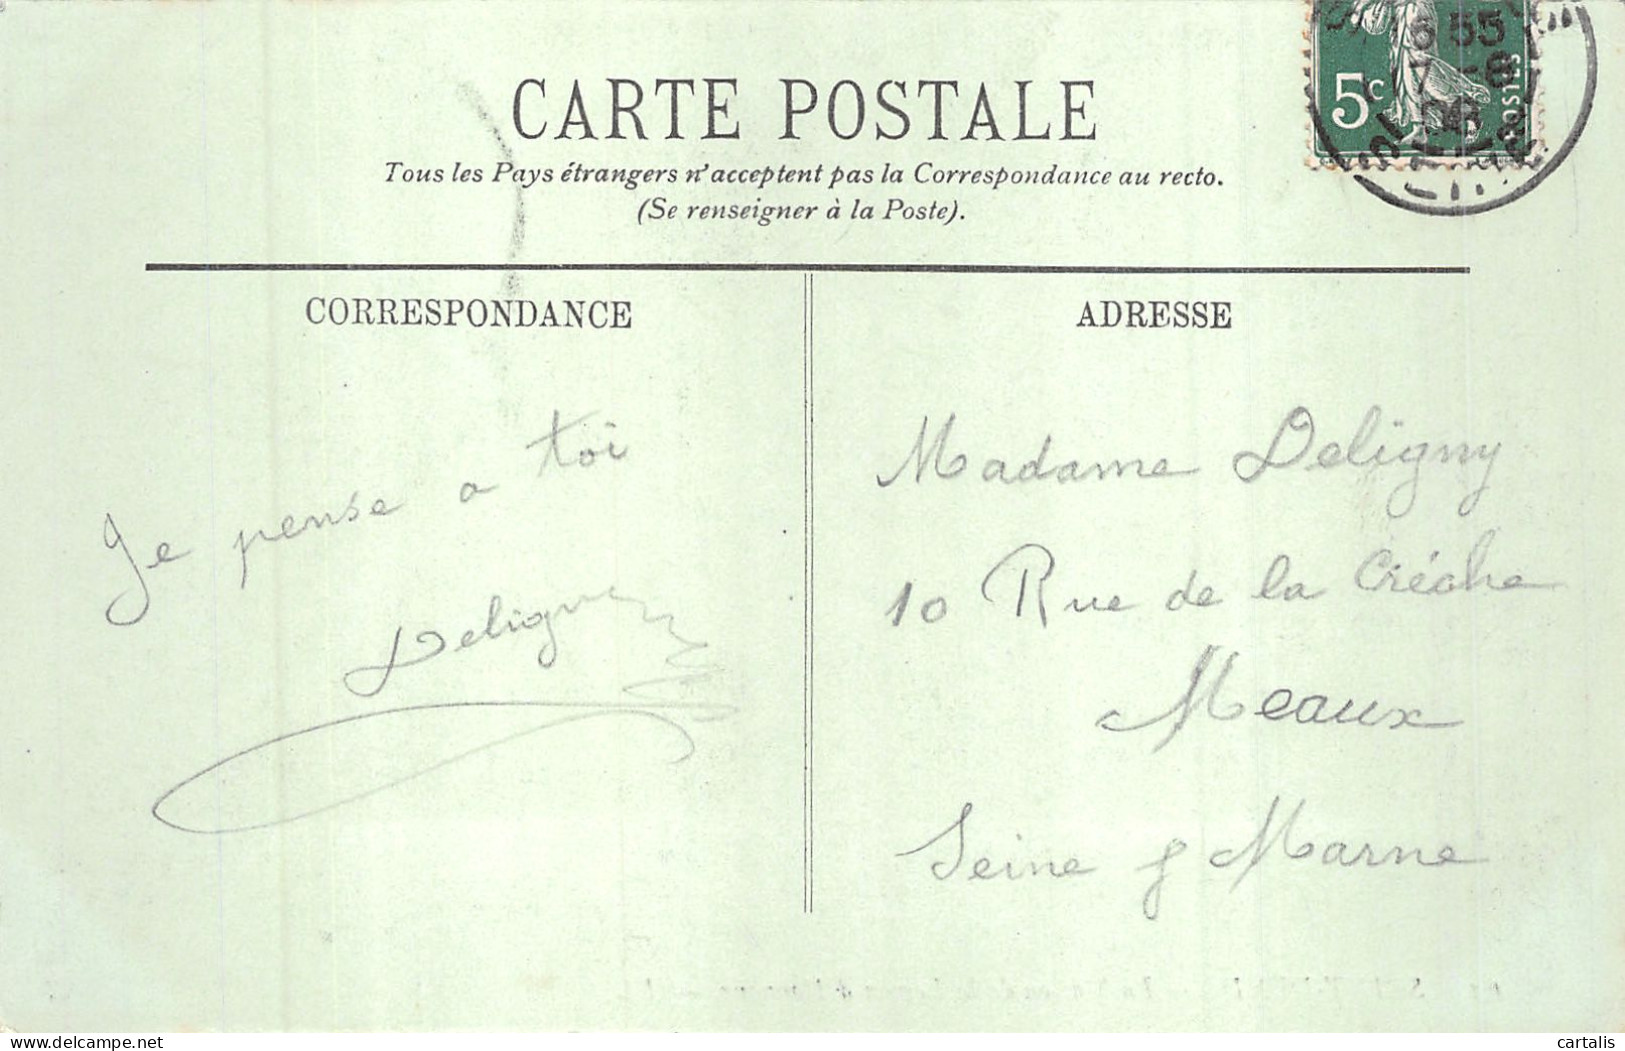 CARTE POSTALE
Tous les Pays étrangers n'acceptent pas la Correspondance au recto.
(Se renseigner à la Poste).
5c
POSTES
CORRESPONDANCE
ADRESSE
Je pense a toi
Deligny
Madame Deligny
10 Rue de la Crèche
Meaux
Seine & Marne
delcampe.net
cartalis